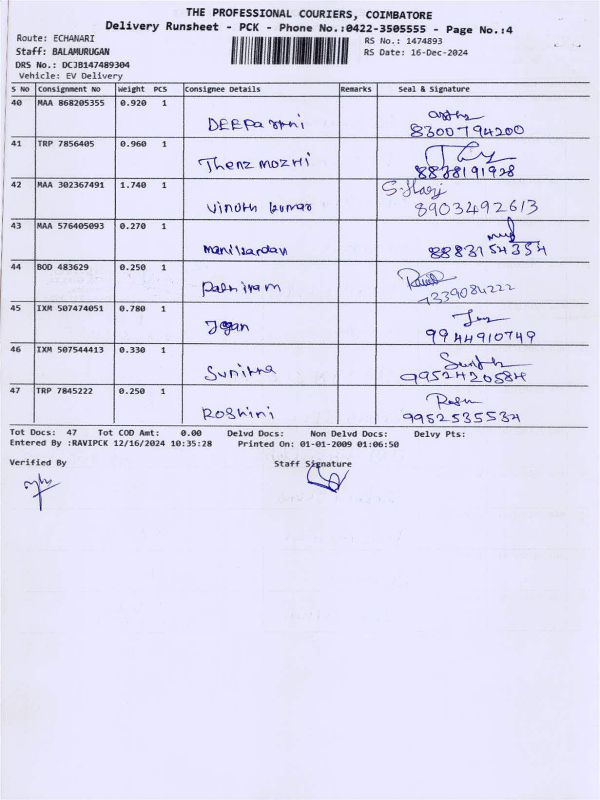 THE PROFESSIONAL COURIERS, COIMBATORE
Delivery Runsheet - PCK - Phone No.:0422-3505555 - Page No.:4
Route: ECHANARI
RS No.: 1474893
Staff: BALAMURUGAN
RS Date: 16-Dec-2024
DRS No.: DCJB147489304
Vehicle: EV Delivery
S No Consignment No Weight PCS Consignee Details Remarks Seal & Signature
40 MAA 868205355 0.920 1 DEEPA rani
8300794200
41 TRP 7856405 0.960 1 Thenz mozhi
8838191928
42 MAA 302367491 1.740 1 vinoth kumar S. Haaj
8903492613
43 MAA 576405093 0.270 1 manikandan
8883154354
44 BOD 483629 0.250 1 Palniram
7339084222
45 IXM 507474051 0.780 1 Jegan
9944910749
46 IXM 507544413 0.330 1 Sunitha
9952420584
47 TRP 7845222 0.250 1 Roshini
9952535534
Tot Docs: 47 Tot COD Amt: 0.00 Delvd Docs: Non Delvd Docs: Delvy Pts:
Entered By :RAVIPCK 12/16/2024 10:35:28 Printed On: 01-01-2009 01:06:50
Verified By Staff Signature